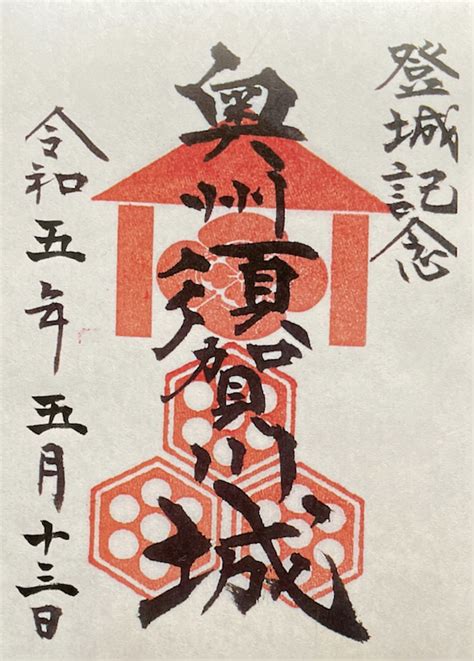 登城記念
奥州須賀川城
令和五年五月十三日